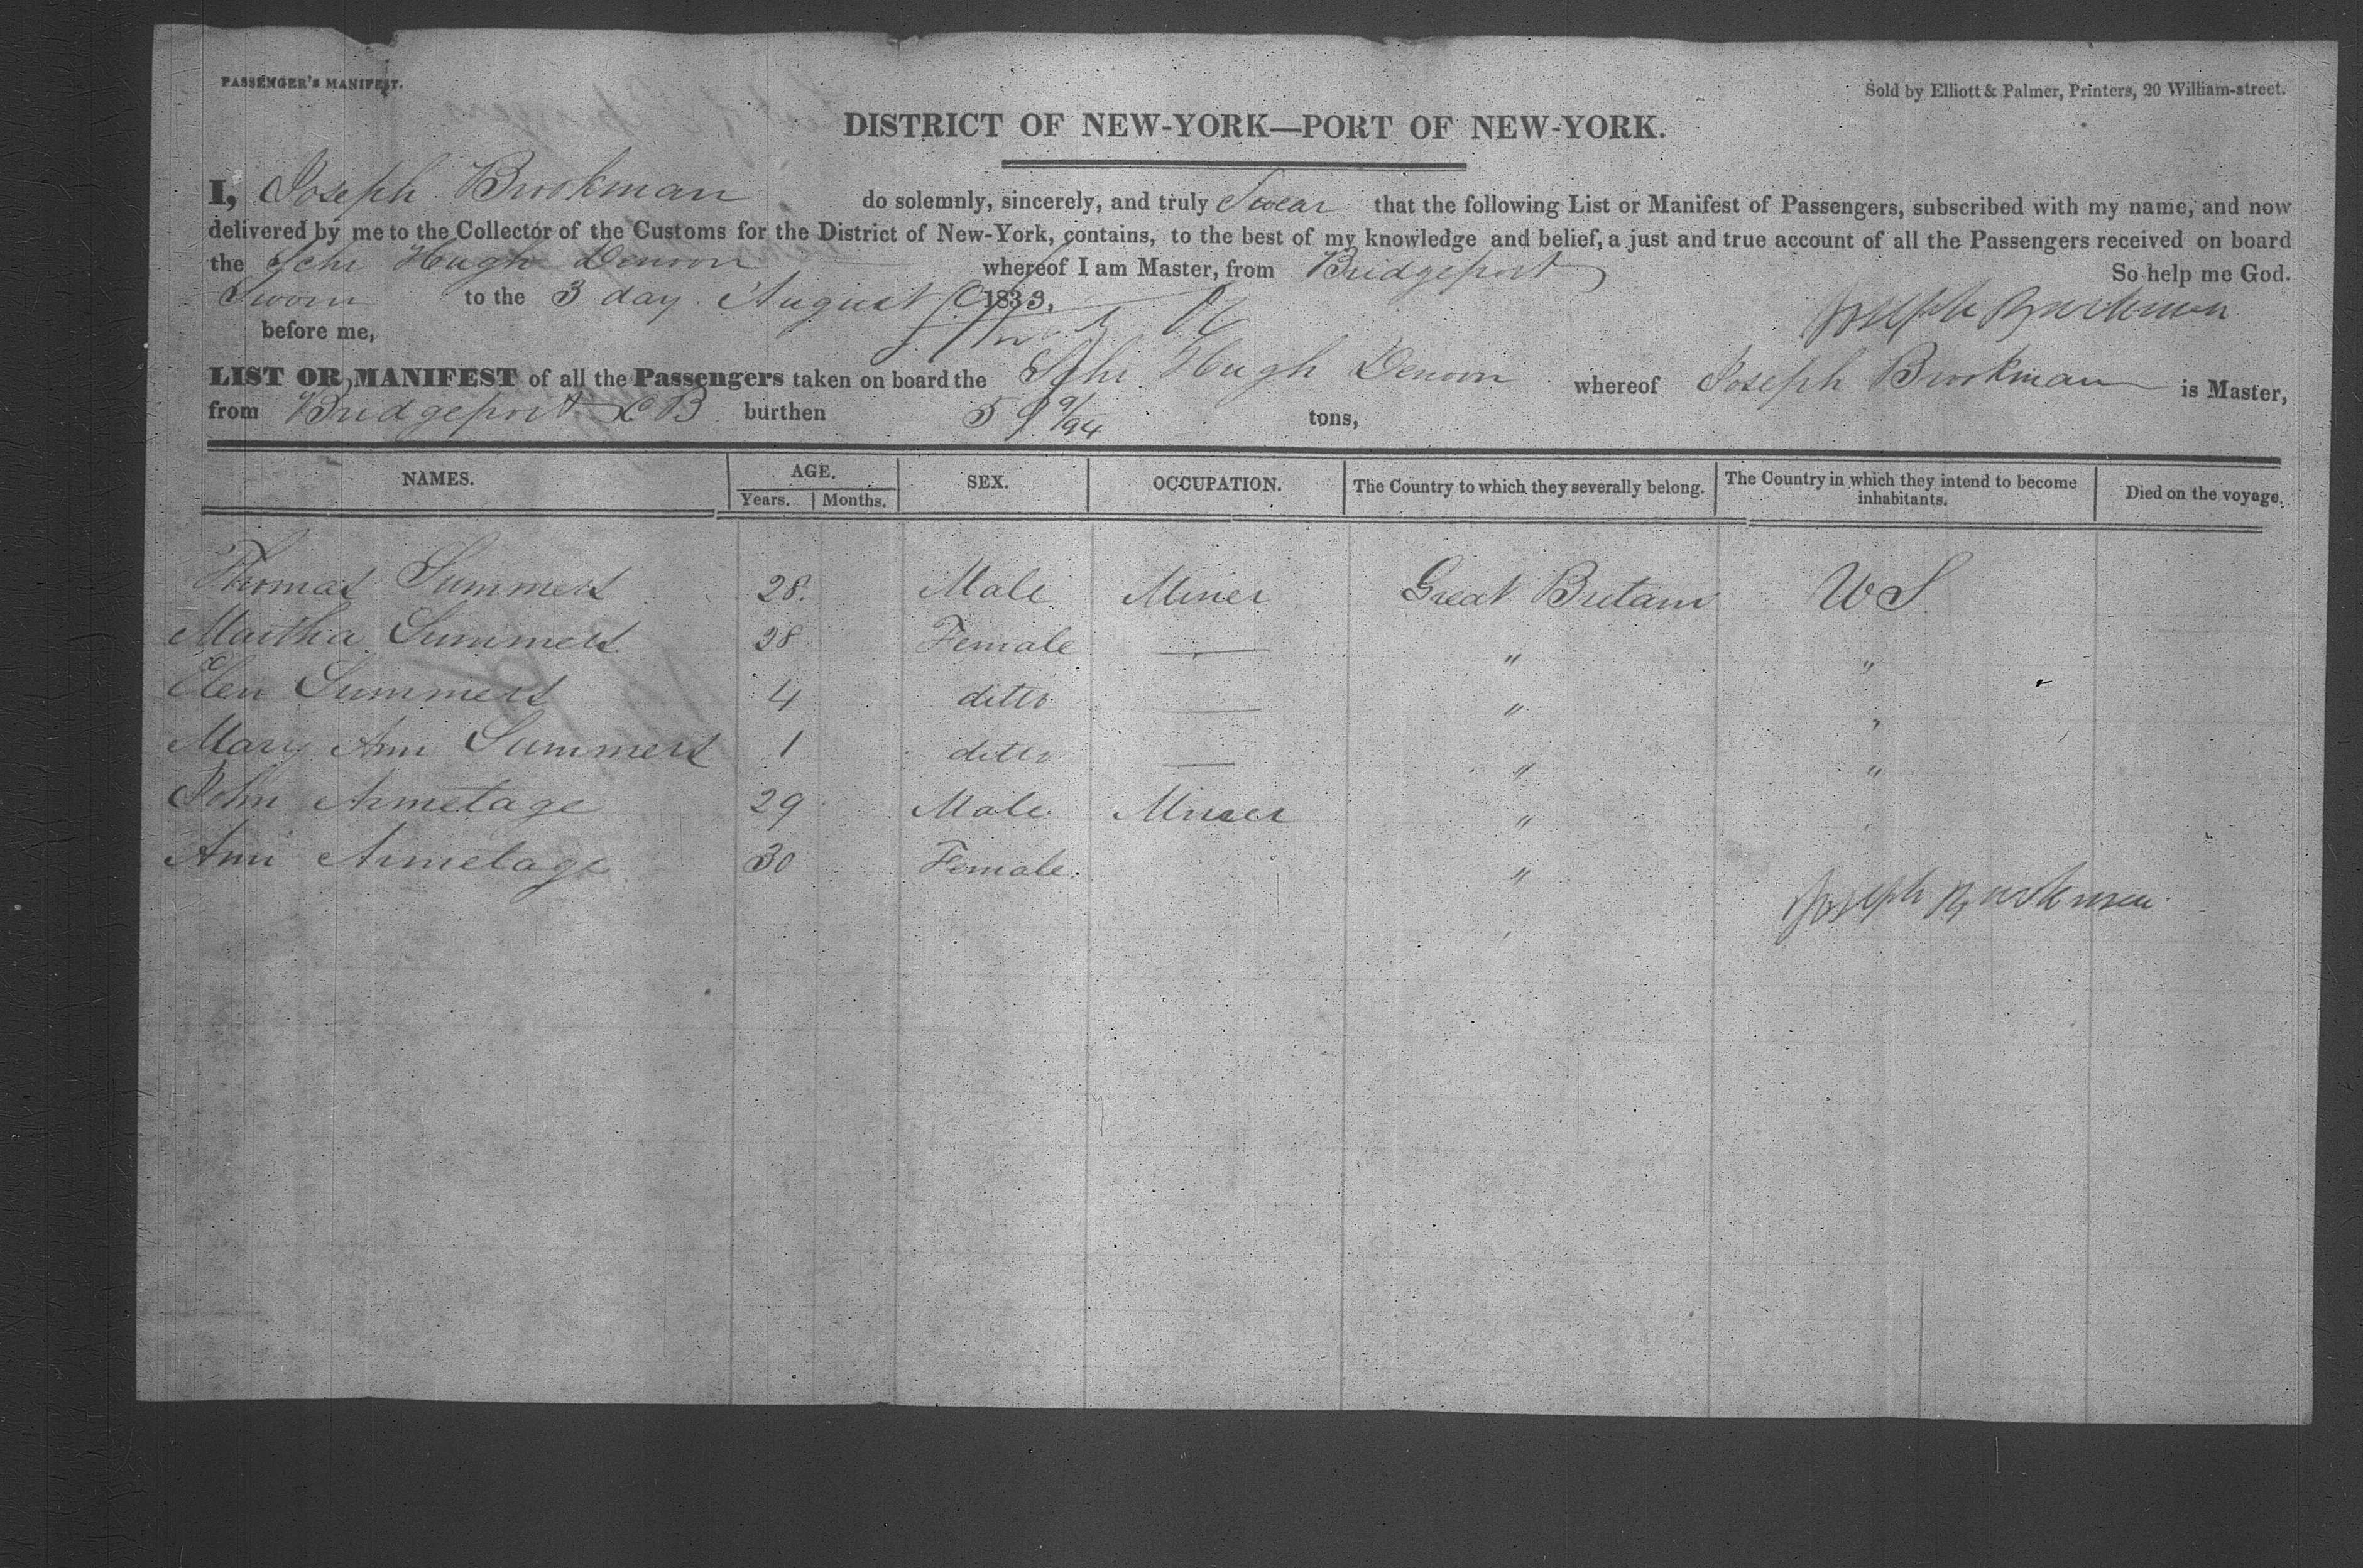 PASSENGER'S MANIFEST.
Sold by Elliott & Palmer, Printers, 20 William-street.
DISTRICT OF NEW-YORK—PORT OF NEW-YORK.
I, Joseph Brookman do solemnly, sincerely, and truly Swear that the following List or Manifest of Passengers, subscribed with my name, and now
delivered by me to the Collector of the Customs for the District of New-York, contains, to the best of my knowledge and belief, a just and true account of all the Passengers received on board
the Schr Hugh Denoon whereof I am Master, from Bridgeport So help me God.
Sworn to the 3 day August 1833,
Joseph Brookman
before me,
LIST OR MANIFEST of all the Passengers taken on board the Schr Hugh Denoon whereof Joseph Brookman is Master,
from Bridgeport CB burthen 59 9/94 tons,
NAMES. AGE. SEX. OCCUPATION. The Country to which they severally belong. The Country in which they intend to become inhabitants. Died on the voyage.
Years. Months.
Thomas Summers 28. Male Miner Great Britain US
Martha Summers 28 Female — " "
Elen Summers 4 ditto — " "
Mary Ann Summers 1 ditto — " "
John Armetage 29 Male Miner "
Ann Armetage 30 Female "
Joseph Brookman